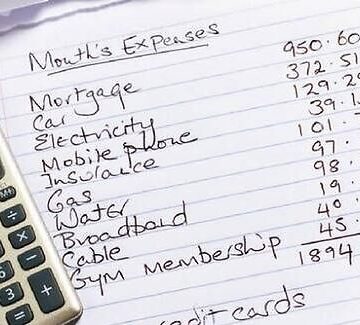 Month's Expenses
Mortgage 950.60
Car 372.51
Electricity 129.2
Mobile phone 39.1
Insurance 101.
Gas 97.
Water 98.
Broadband 19.
Cable 40.
Gym Membership 45.
1894
edit cards
M+
÷
×
6 −
3 +
=